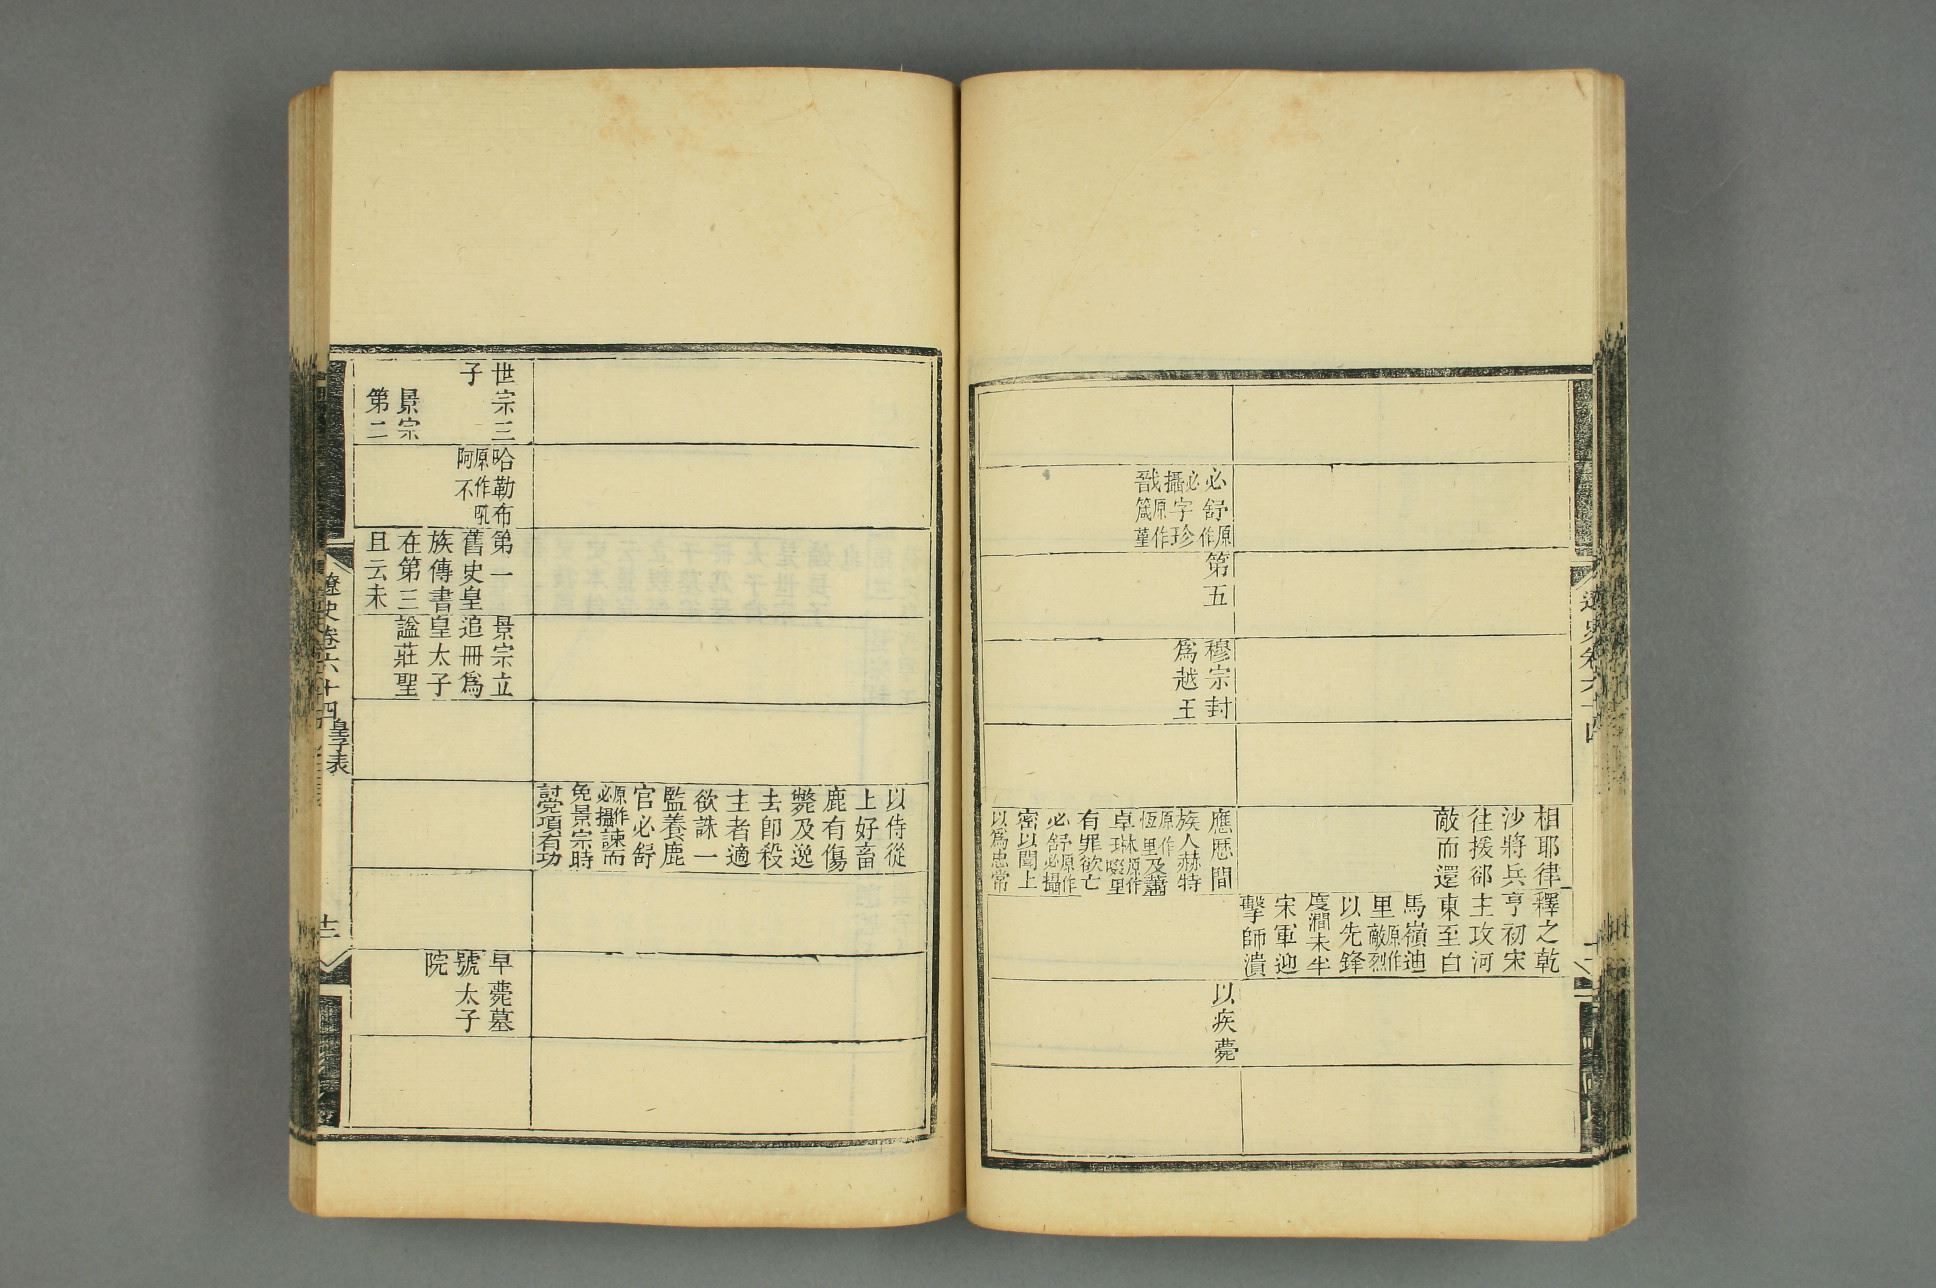 相耶律
沙將兵
往援郤
敵而還
釋之乾
亨初宋
主攻河
東至白
馬嶺迪
里原作敵烈
以先鋒
度澗未半
宋軍迎
擊師潰
必舒原作
必攝字珍
戩原作箴堇
第五
穆宗封
爲越王
應厯間
族人赫特
原作恆里及蕭
卓琳原作㗲里
有罪欲亡
必舒原作必攝
密以聞上
以爲忠常
以疾薨
遼史卷六十四
以侍從
上好畜
鹿有傷
斃及逸
去卽殺
主者適
欲誅一
監養鹿
官必舒
原作必攝諫而
免景宗時
討党項有功
世宗三
子
景宗
第二
哈勒布
原作吼
阿不
第一
舊史皇
族傳書
在第三
且云未
景宗立
追冊爲
皇太子
諡莊聖
早薨墓
號太子
院
遼史卷六十四
皇子表
十二